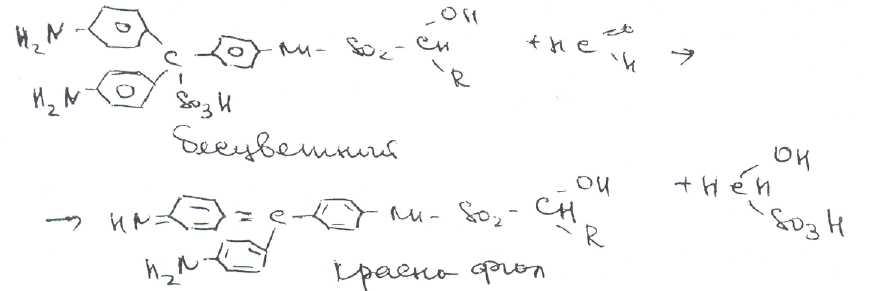 H₂N- -C- -NH- SO₂ - CH OH R + H C =O H →
H₂N- SO₃H
бесцветный
→ HN= =C- -NH- SO₂ - CH OH R + H CH OH SO₃H
H₂N-
красно фиол